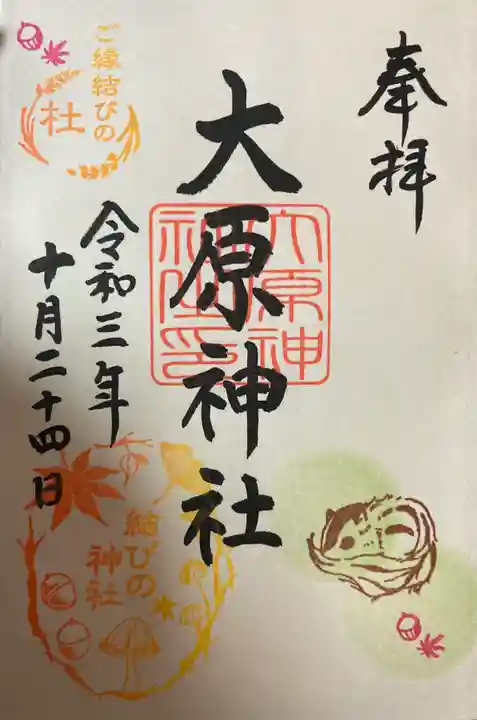 奉拝
大原神社
大原神社之印
令和三年
十月二十四日
ご縁結びの
杜
結びの
神社